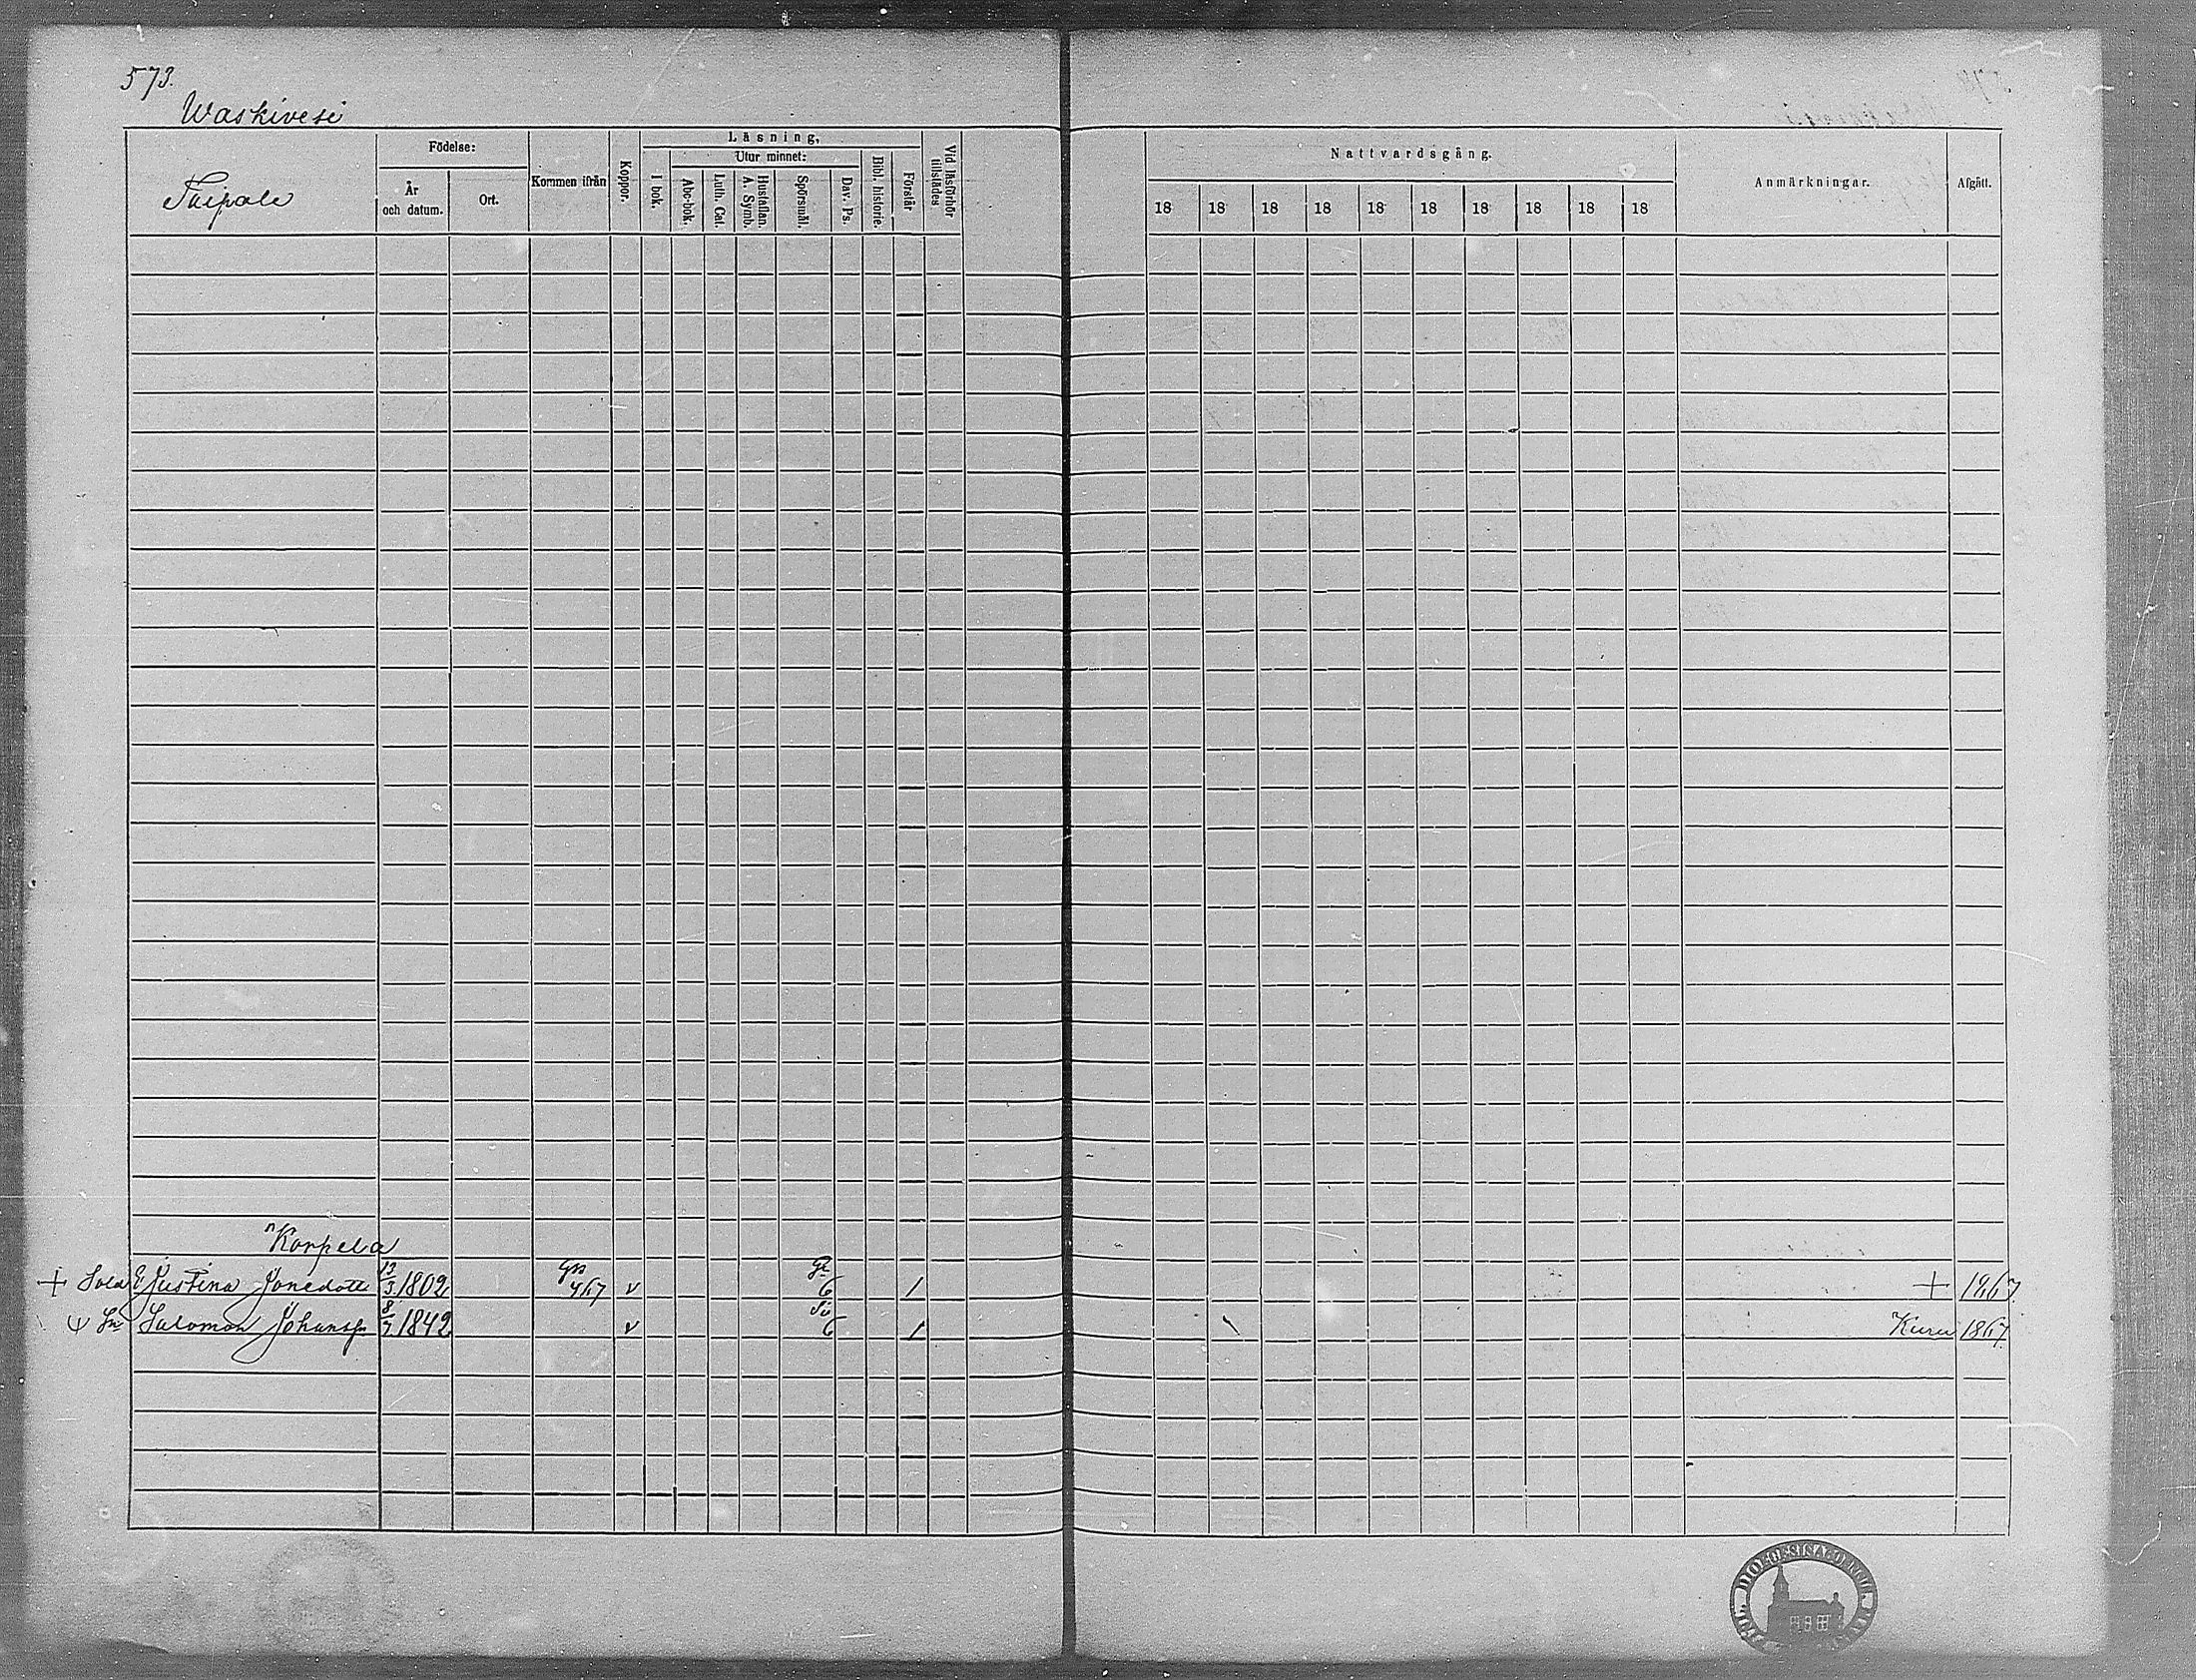 573.
Waskivesi
Taipale
Födelse:
År och datum.
Ort.
Kommen ifrån
Koppor.
Läsning,
I bok.
Utur minnet:
Abc-bok.
Luth. Cat.
Hustaflan. A. Symb.
Spörsmål.
Dav. Ps.
Bibl. historie.
Förstår
Vid läsförhör tillstädes
Nattvardsgång.
18 18 18 18 18 18 18 18 18 18
Anmärkningar.
Afgått.
Korpela
+ Sold E Justina Jonedott 13/3 1802 467 v 6 / + 1867.
Sn Salomon Johansn 8/7 1842 v 6 / \ Kuru 1867.